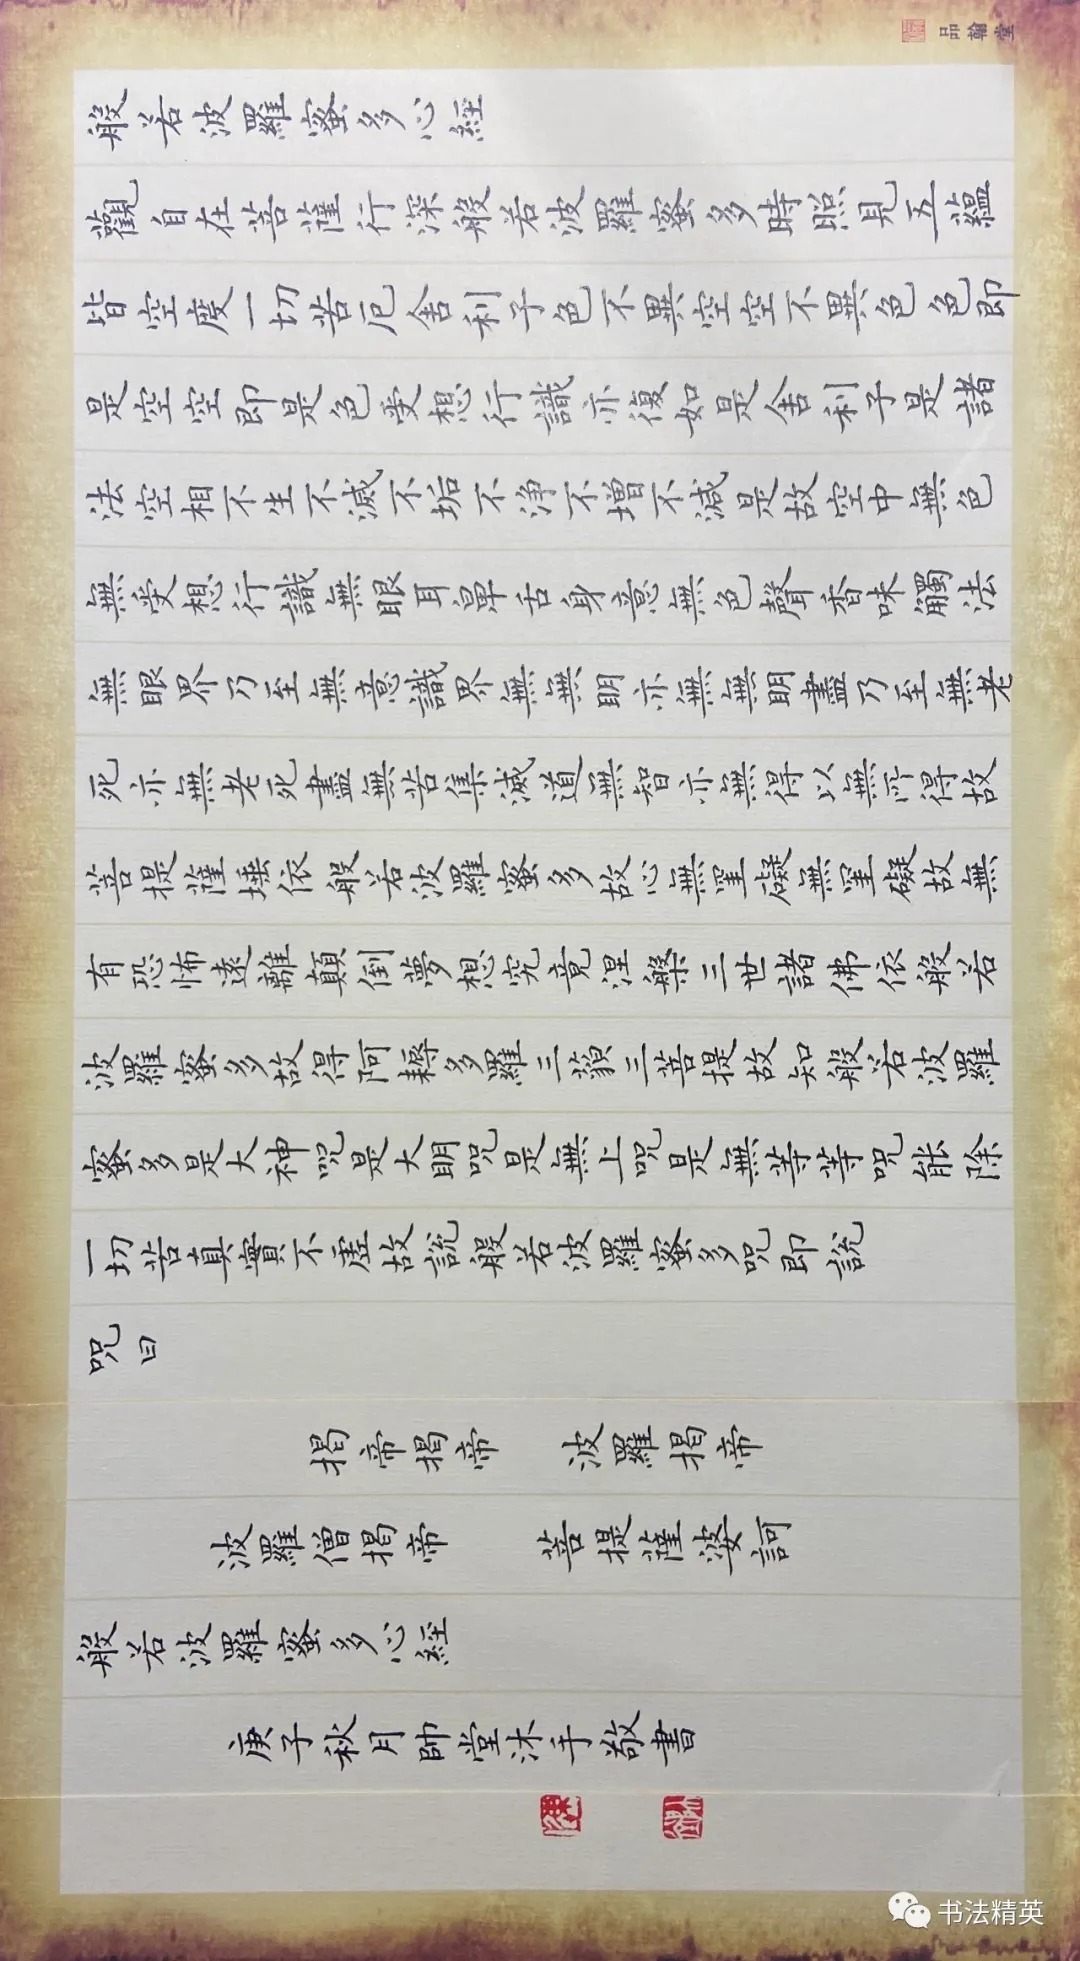 般若波羅蜜多心經
觀自在菩薩行深般若波羅蜜多時照見五蘊
皆空度一切苦厄舍利子色不異空空不異色色即
是空空即是色受想行識亦復如是舍利子是諸
法空相不生不滅不垢不淨不增不減是故空中無色
無受想行識無眼耳鼻舌身意無色聲香味觸法
無眼界乃至無意識界無無明亦無無明盡乃至無老
死亦無老死盡無苦集滅道無智亦無得以無所得故
菩提薩埵依般若波羅蜜多故心無罣礙無罣礙故無
有恐怖遠離顛倒夢想究竟涅槃三世諸佛依般若
波羅蜜多故得阿耨多羅三藐三菩提故知般若波羅
蜜多是大神咒是大明咒是無上咒是無等等咒能除
一切苦真實不虛故說般若波羅蜜多咒即說
咒曰
揭帝揭帝 波羅揭帝
波羅僧揭帝 菩提薩婆訶
般若波羅蜜多心經
庚子秋月帥堂沐手敬書
品翰堂
书法精英